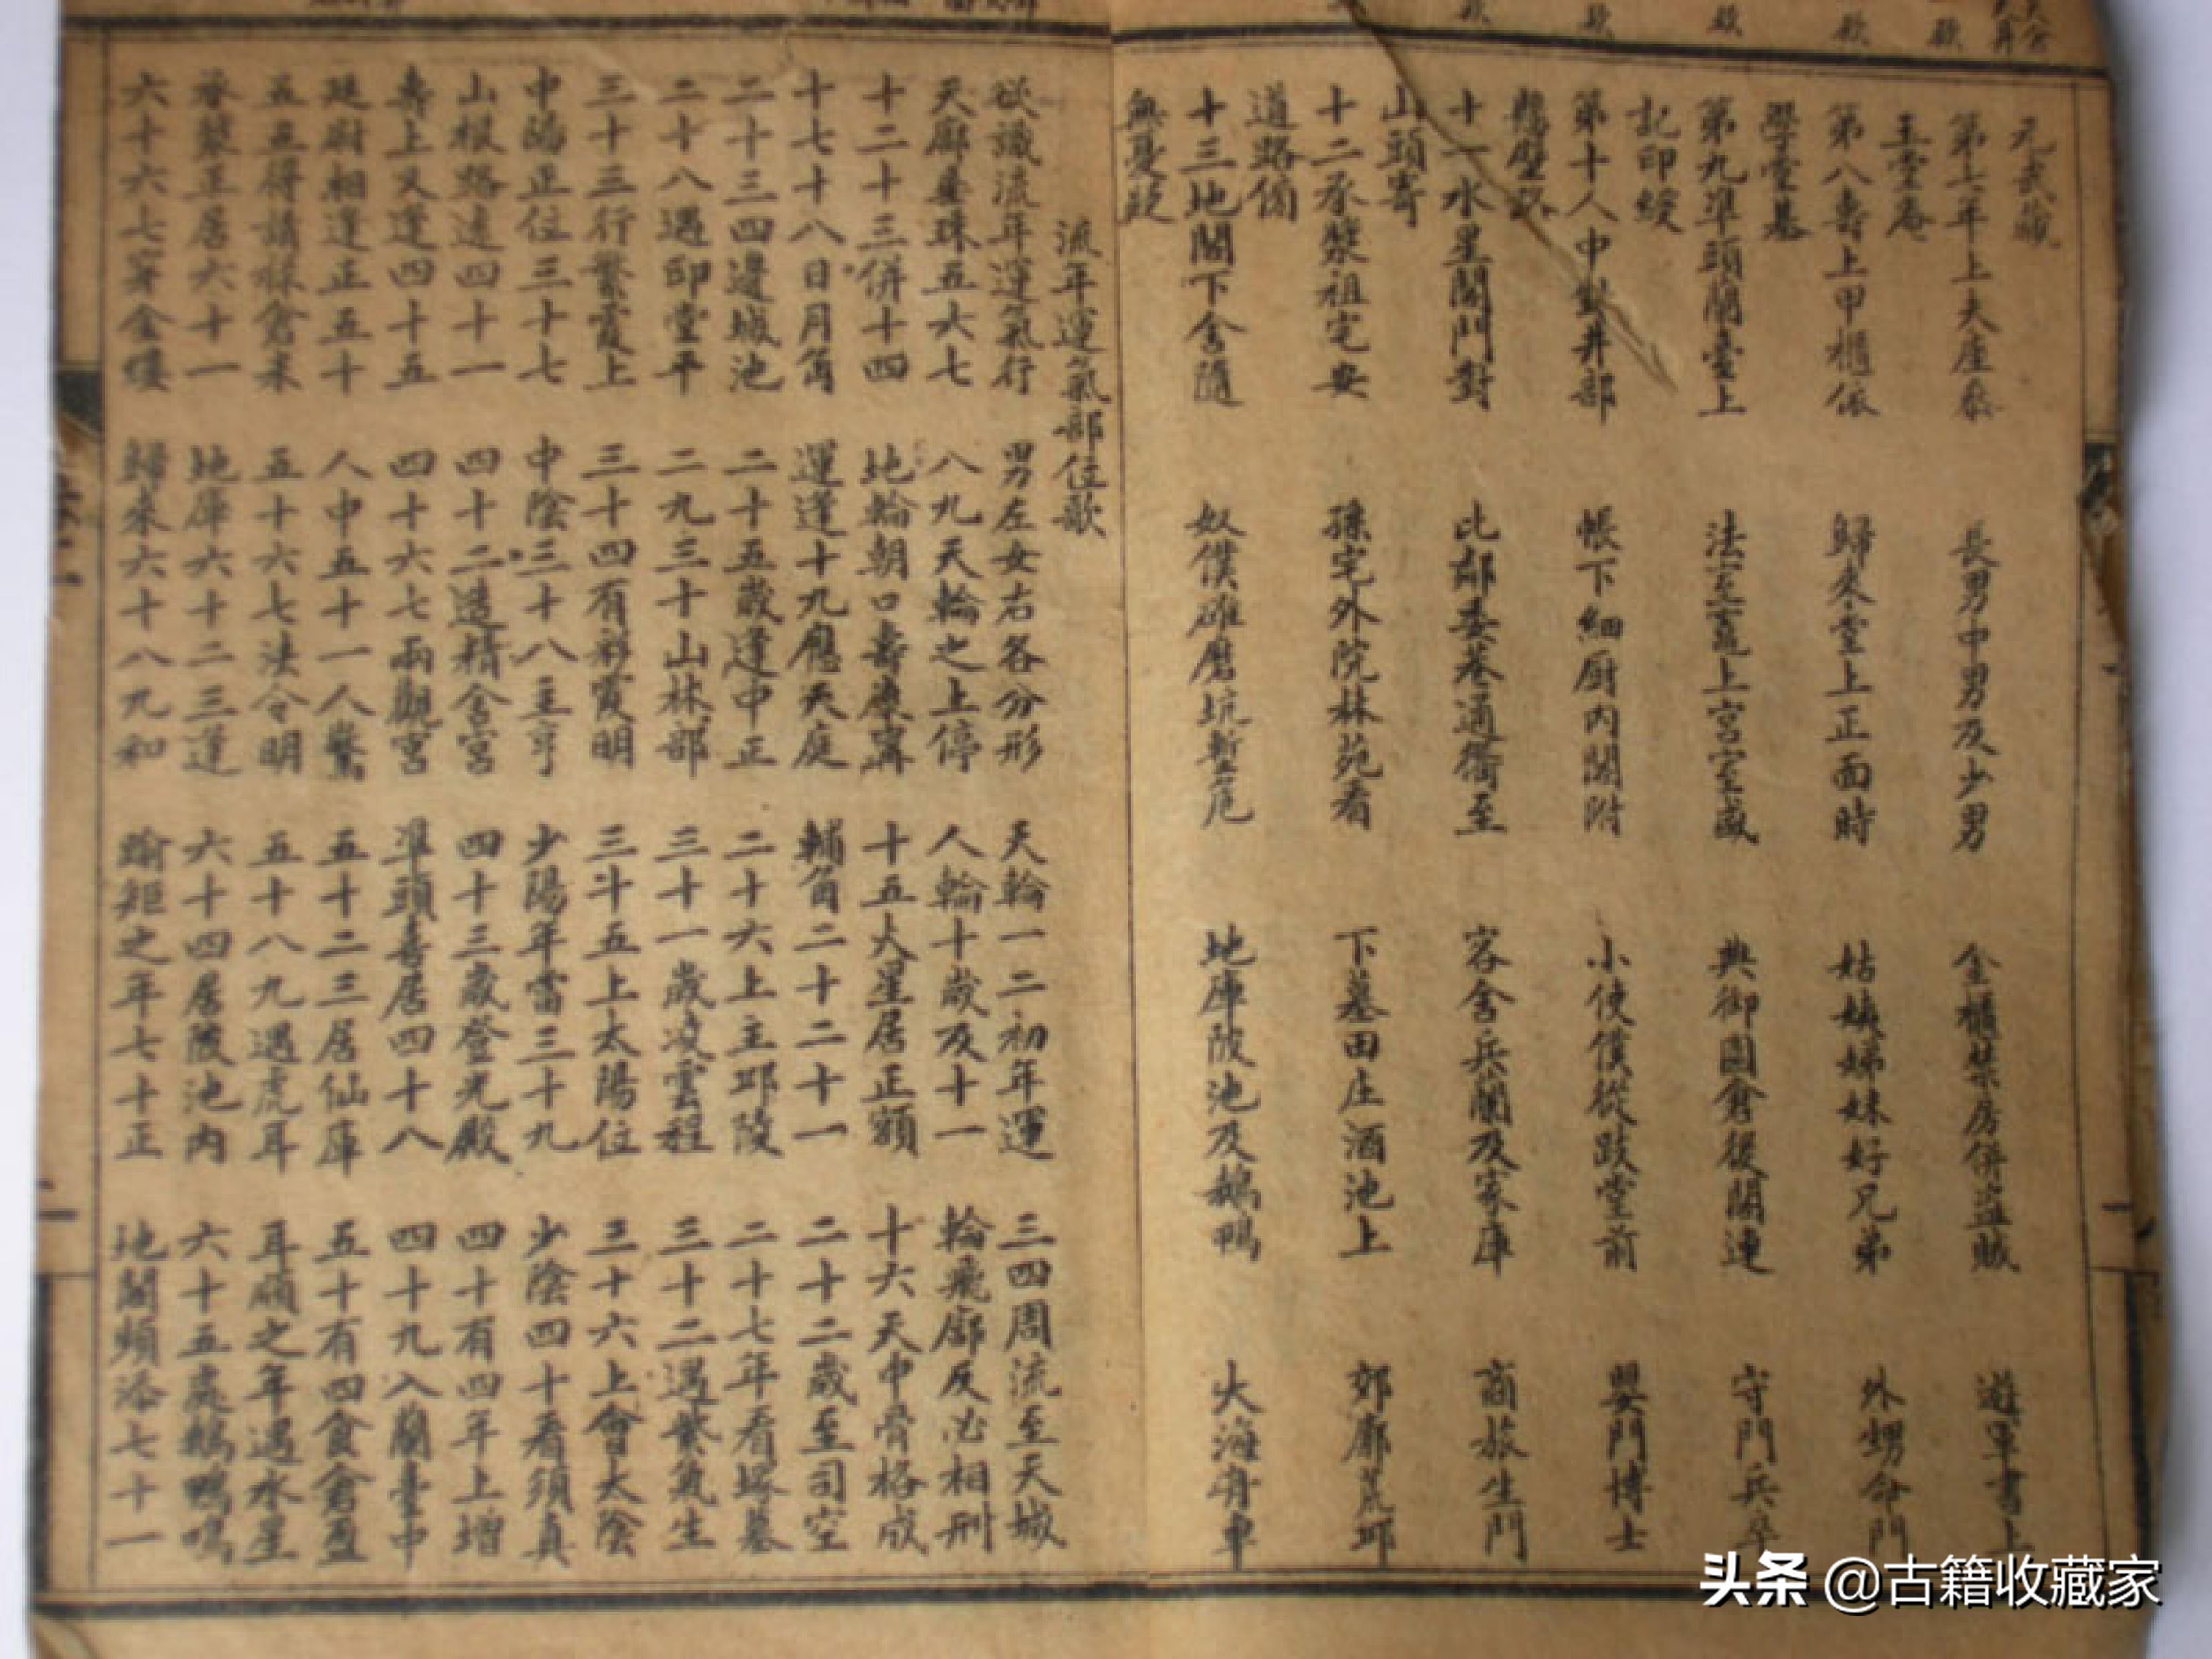 元武藏
第七年上大座參 長男中男及少男 金櫃禁房併盜賊 遊軍書上
玉堂庵
第八壽上甲櫃依 歸來堂上正面時 姑姨姊妹好兄弟 外甥命門
學堂基
第九準頭蘭臺上 法令竈上宮室盛 典御園倉後閣連 守門兵卒
記印綬
第十人中對井部 帳下細廚內閣附 小使僕從跂堂前 嬰門博士
懸壁路
十一水星閣門對 比鄰委巷通衢至 客舍兵蘭及家庫 商旅生門
山頭寄
十二承漿祖宅安 孫宅外院林苑看 下墓田庄酒池上 郊廓荒邱
道路傍
十三地閣下舍隨 奴僕碓磨坑塹危 地庫陂池及鵝鴨 大海舟車
無憂疑
流年運氣部位歌
欲識流年運氣行 男左女右各分形 天輪一二初年運 三四周流至天城
天廓垂珠五六七 八九天輪之上停 人輪十歲及十一 輪飛廓反必相刑
十二十三併十四 地輪朝口壽康寧 十五火星居正額 十六天中骨格成
十七十八日月角 運逢十九應天庭 輔角二十二十一 二十二歲至司空
二十三四邊城池 二十五歲逢中正 二十六上主邱陵 二十七年看塚墓
二十八遇印堂平 二九三十山林部 三十一歲凌雲程 三十二遇紫氣生
三十三行繁霞上 三十四有彩霞明 三十五上太陽位 三十六上會太陰
中陽正位三十七 中陰三十八主亨 少陽年當三十九 少陰四十看須真
山根路遠四十一 四十二造精舍宮 四十三歲登光殿 四十有四年上增
壽上又逢四十五 四十六七兩觀宮 準頭喜居四十八 四十九入蘭臺中
廷尉相逢正五十 人中五十一人驚 五十二三居仙庫 五十有四食倉盈
五五得請祿倉米 五十六七法令明 五十八九遇虎耳 耳順之年遇水星
承漿正居六十一 地庫六十二三逢 六十四居陂池內 六十五處鵝鴨鳴
六十六七穿金縷 歸來六十八九和 踰矩之年七十正 地閣頻添七十一
头条 @古籍收藏家